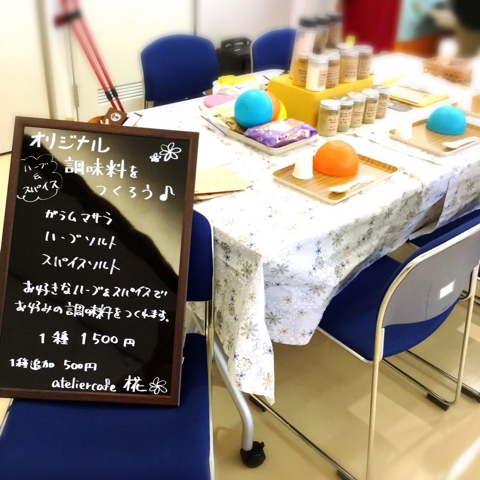 オリジナル
ハーブ
&
スパイス
調味料を
つくろう♪
ガラムマサラ
ハーブソルト
スパイスソルト
お好きなハーブ&スパイスで
お好みの調味料をつくれます。
1種 1500円
1種追加 500円
ateliercafe 椛